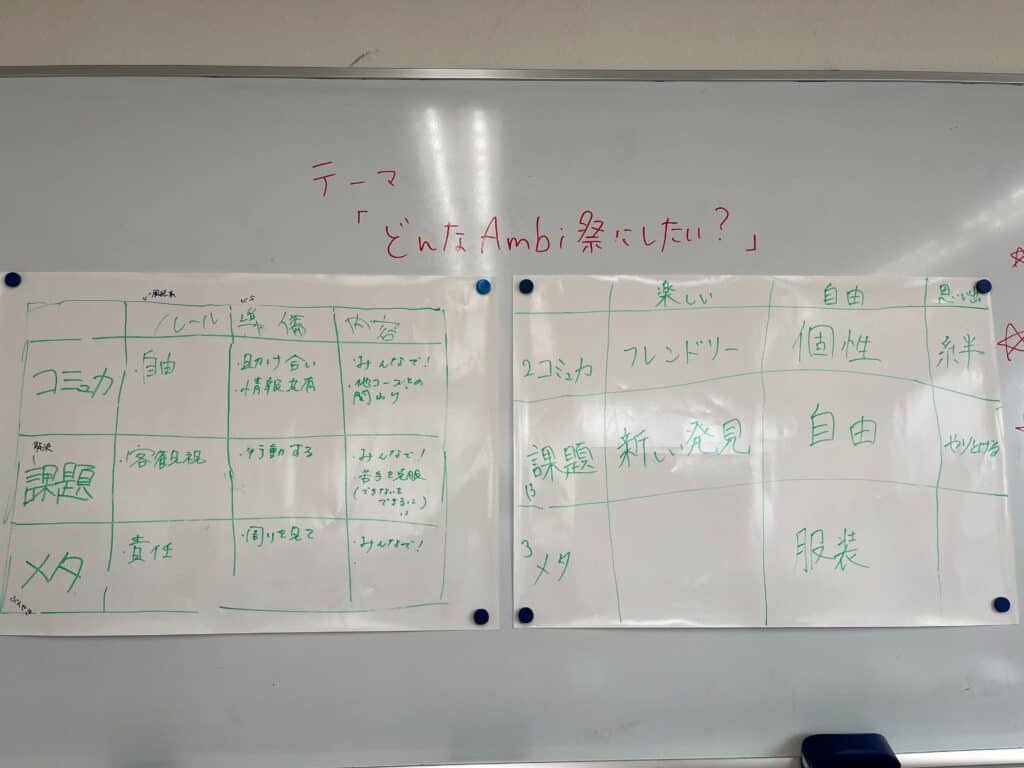 テーマ
「どんなAmbi祭にしたい?」
ルール 準備 内容
コミュカ ・自由 ・助け合い ・みんなで!
・情報共有 ・他コースとの
関わり
解決
課題 ・客観視 ・行動する ・みんなで!
・苦手を克服
(できないを
できるに)
メタ ・責任 ・周りを見て ・みんなで!
楽しい 自由 思い出
2コミュカ フレンドリー 個性 絆
課題 新しい発見 自由 やりとげる
13
3メタ 服装